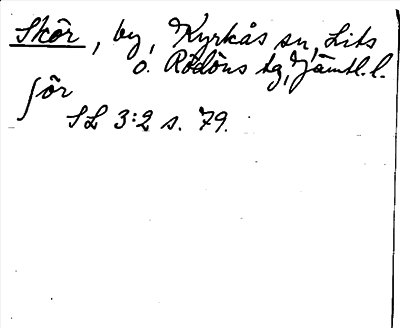 Skör, by, Kyrkås sn, Lits
o. Rödöns tg, Jämtl. l.
ʃör
SL 3:2 s. 79.